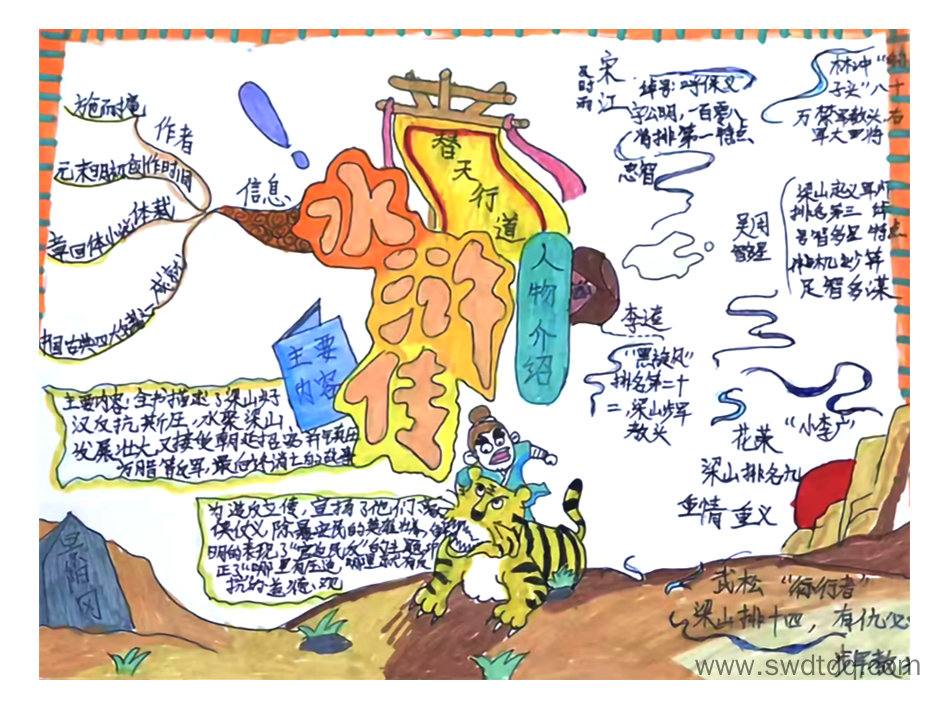 水浒传
替天行道
信息
作者
施耐庵
元末明初创作时间
章回体小说体裁
成就
中国古典四大名著之一
主要
内容
主要内容:全书描述了梁山好
汉反抗欺压,水聚梁山、
发展壮大,又接受朝廷招安
方腊
最后
消亡的故事
为造反立传,宣扬了他们
侠仗义 除暴安民的英雄
明的表现了"官逼民反"的主题
正了"哪里有压迫,哪里就有反
抗的道德观
景阳冈
人物介绍
宋江
及时雨
绰号:呼保义
字公明,一百零八
将排第一 特点
忠智
林冲"豹
子头"八十
万禁军教头 右
军大
将
吴用
智多星
梁山
义军师
排名第三 绰
号智多星 特点
神机妙算
足智多谋
李逵
"黑旋风"
排名第二十
二,梁山步军
教头
花荣 "小李广"
梁山排名九
重情重义
武松 "行行者"
梁山排十四,有仇必
www.swdtcq.com